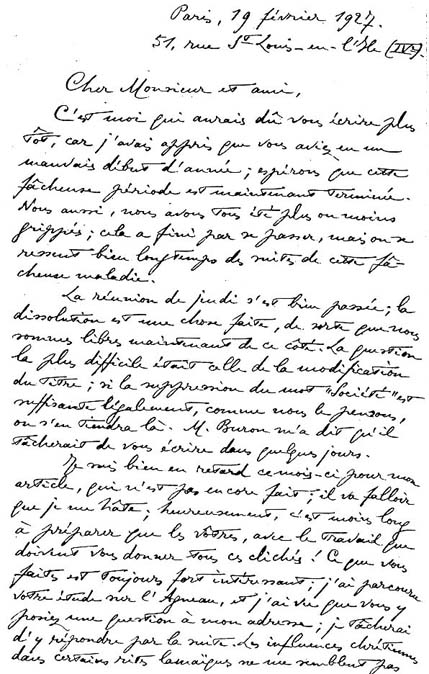 Paris, 19 février 1927.
51, rue St Louis-en-l'Ile (IVe).
Cher Monsieur et ami,
C'est moi qui aurais dû vous écrire plus
tôt, car j'avais appris que vous aviez eu un
mauvais début d'année ; espérons que cette
fâcheuse période est maintenant terminée.
Nous aussi, nous avons tous été plus ou moins
grippés ; cela a fini par se passer, mais on se
ressent bien longtemps des suites de cette fâ-
cheuse maladie.
La réunion de jeudi s'est bien passée ; la
dissolution est une chose faite, de sorte que nous
sommes libres maintenant de ce côté. La question
la plus difficile était celle de la modification
du titre ; si la suppression du mot "Société" est
suffisante légalement, comme nous le pensons,
on s'en tiendra là. M. Buron m'a dit qu'il
tâcherait de vous écrire dans quelques jours.
Je suis bien en retard ce mois-ci pour mon
article, qui n'est pas encore fait ; il va falloir
que je me hâte ; heureusement, c'est moins long
à préparer que les vôtres, avec le travail que
doivent vous donner tous ces clichés ! Ce que vous
faites est toujours fort intéressant ; j'ai parcouru
votre étude sur l'Agneau, et j'ai vu que vous y
posiez une question à mon adresse ; je tâcherai
d'y répondre par la suite. Les influences chrétiennes
dans certains rites lamaïques ne me semblent pas